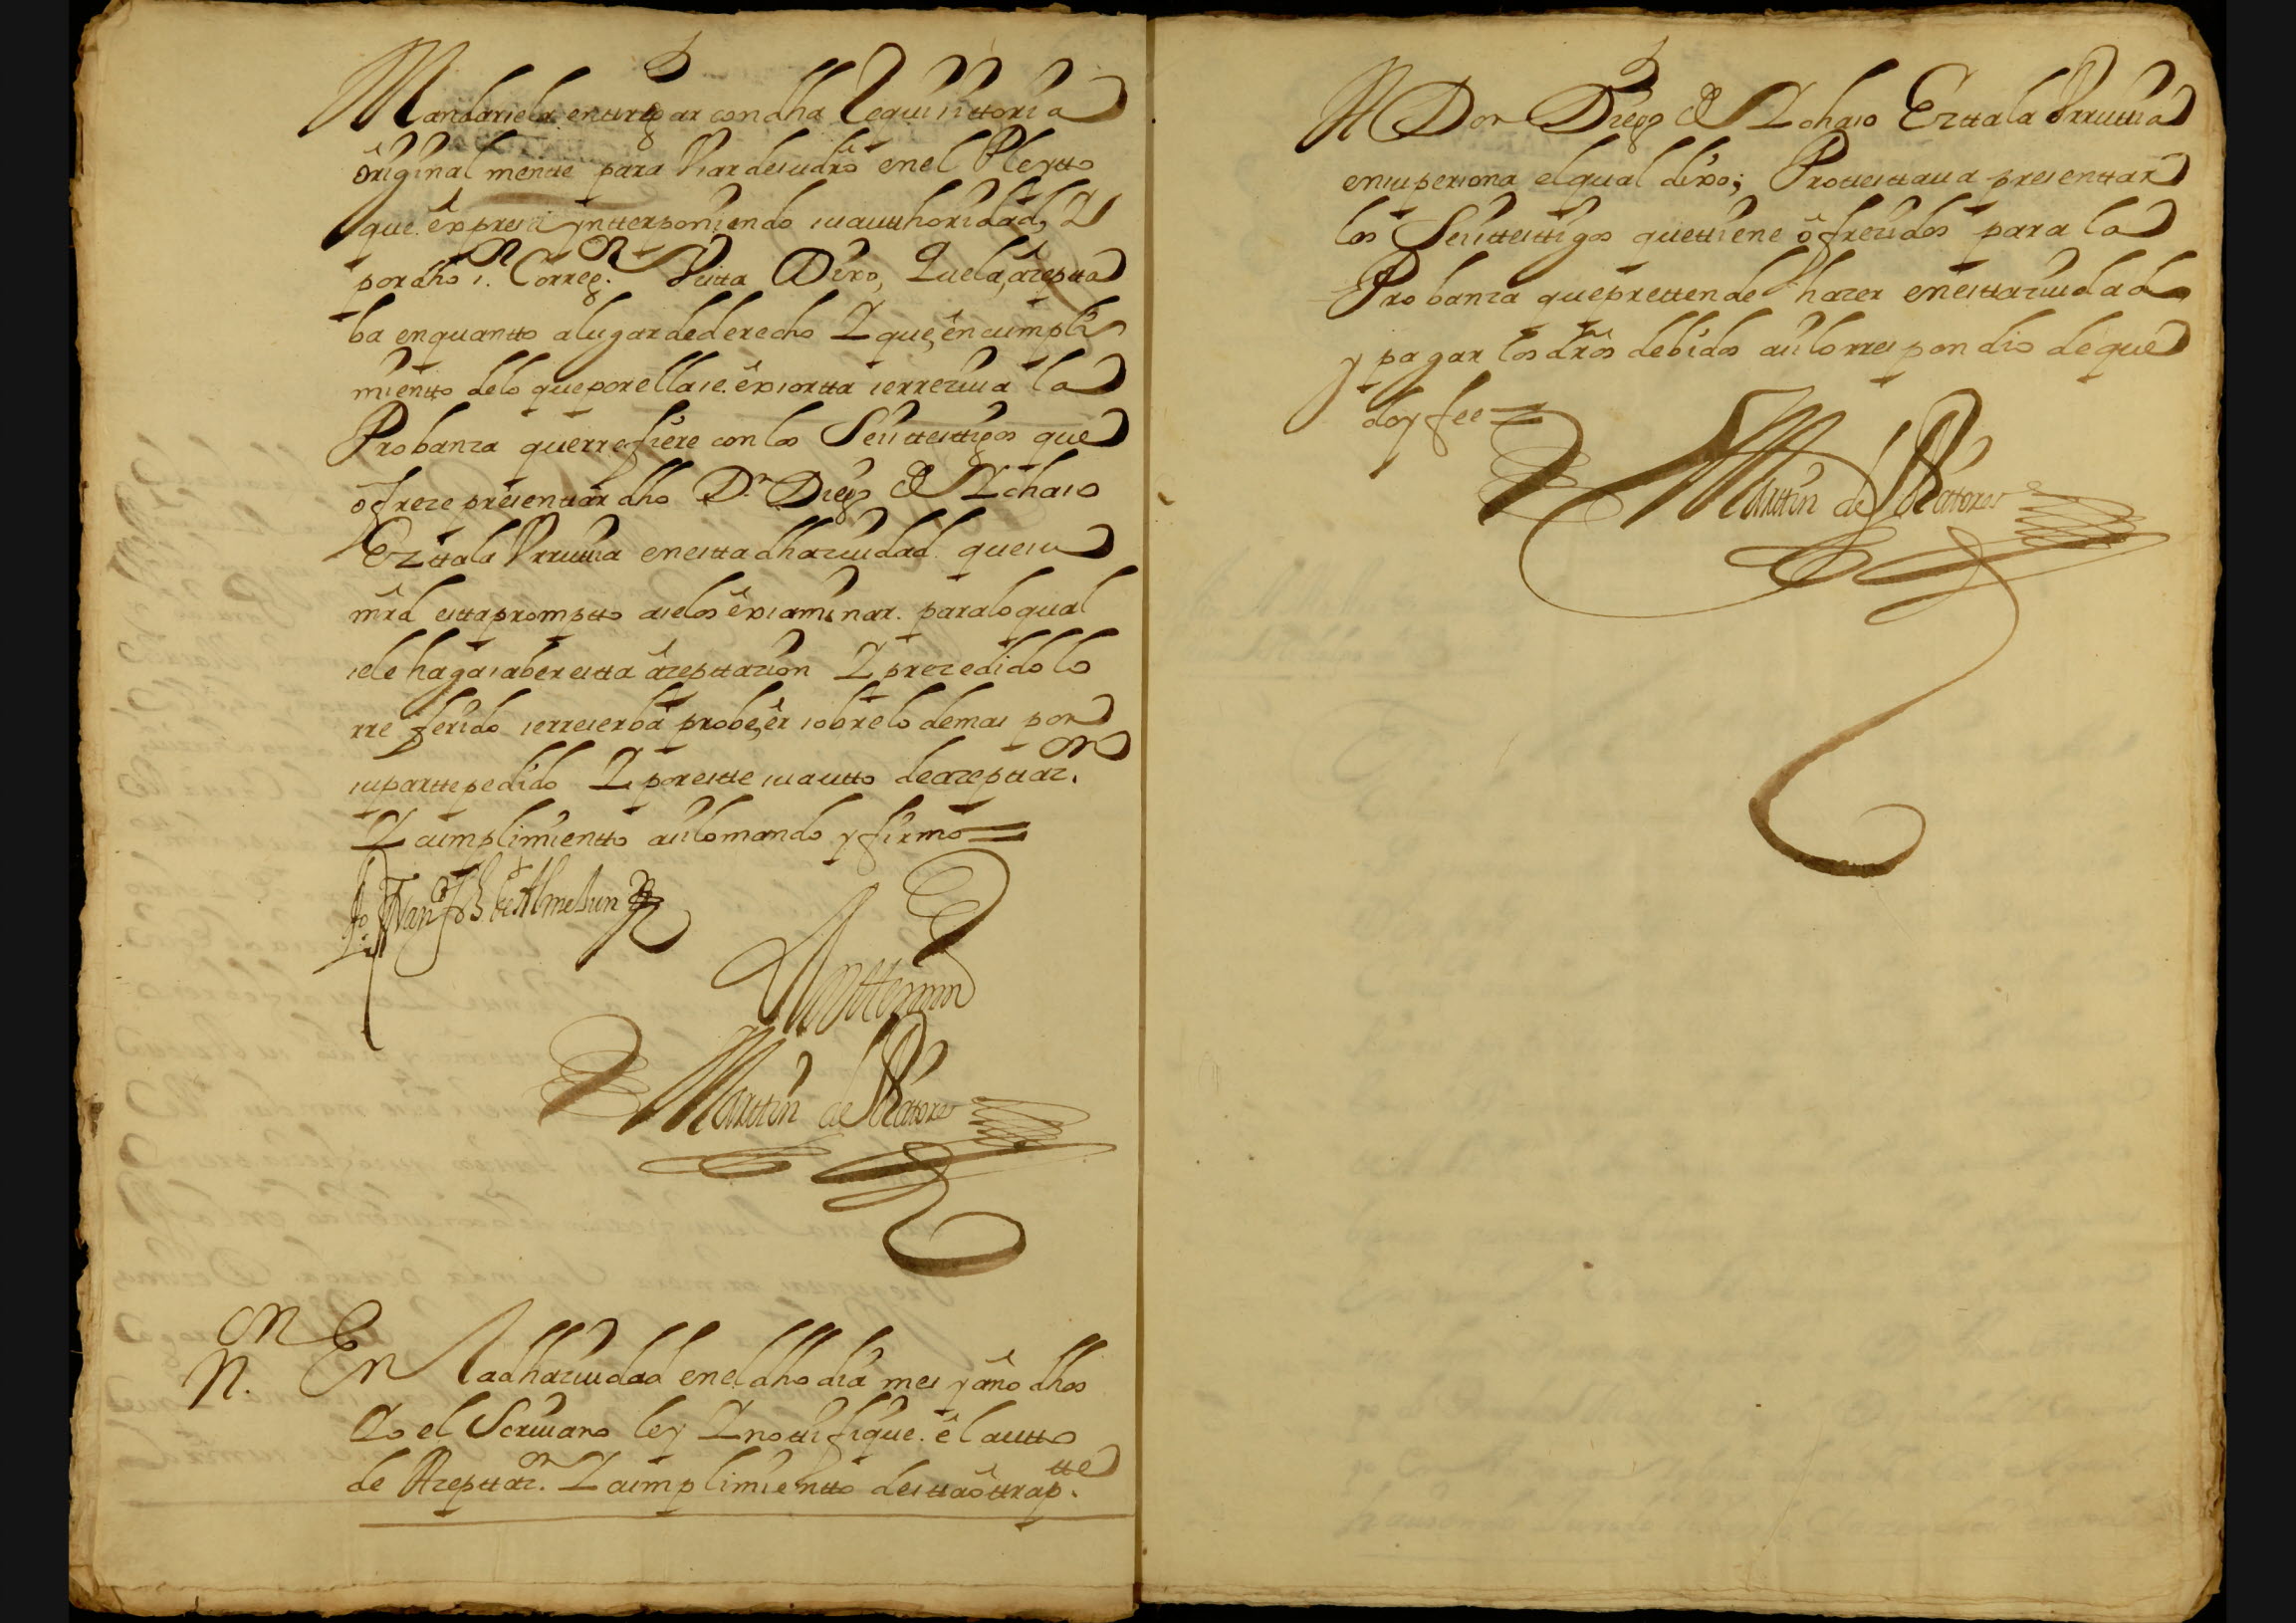 Mandarsela entregar con dha Requisittoria
original mente para Usar de su dro en el Pleytto
que expresa ynterponiendo su authoridad, Y
por dho sr. Correg.or Vista Dixo, Que la, azeptta
ba en quantto a lugar de derecho Y que, en cumpli
mientto de lo que por ella se exsortta se rreziua la
Probanza que rrefiere con los Seis testtigos que
ofreze presenttar dho Dn Diego de Ychaso
Ezttala Urruttia en estta dha ziudad que su
mrd estta promptto a se los exsaminar. para lo qual
se le haga saber estta azepttazion Y prezedido lo
rreferido se rreserba probe,er sobre lo demas por
su partte pedido Y por estte su autto de azepttaz.on
Y cumplimientto asi lo mando y firmo =
Antte mi
Marttin de
N.on En la dha ziudad en el dho dia mes y año dhos
Yo el Scriuano ley Y nottifique. el autto
de Azepttaz.on Y cumplimientto de estta ottra p.tte
A Don Diego de Ychaso Ezttala Urruttia
en su persona el qual dixo; Prottesttaua presenttar
los Seis testtigos que ttiene ofrezidos para la
Probanza que prettende hazer en estta ziudad
y pagar los dros debidos asi lo rrespondio de que
doy fee =
Marttin de